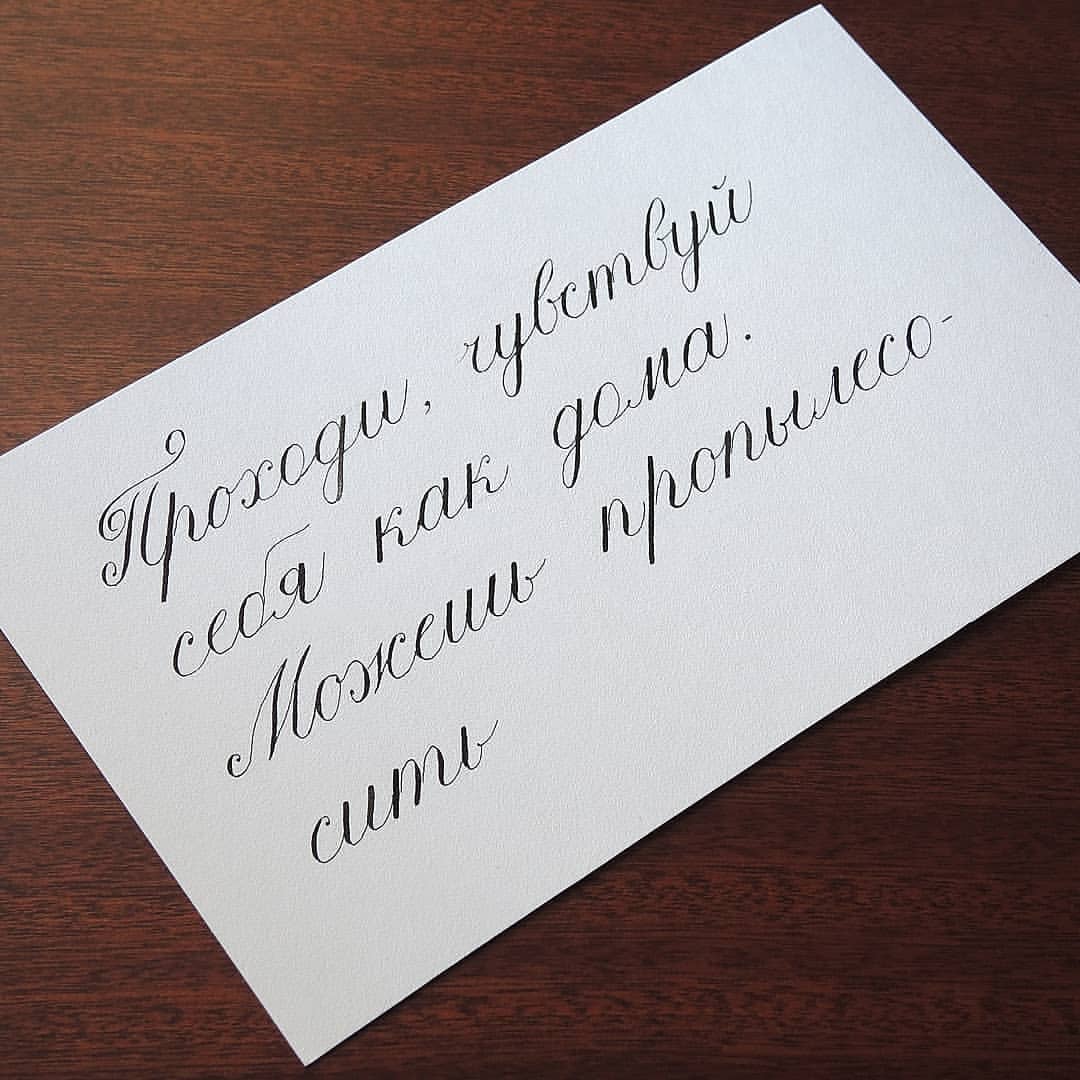 Проходи, чувствуй
себя как дома.
Можешь пропылесо-
сить